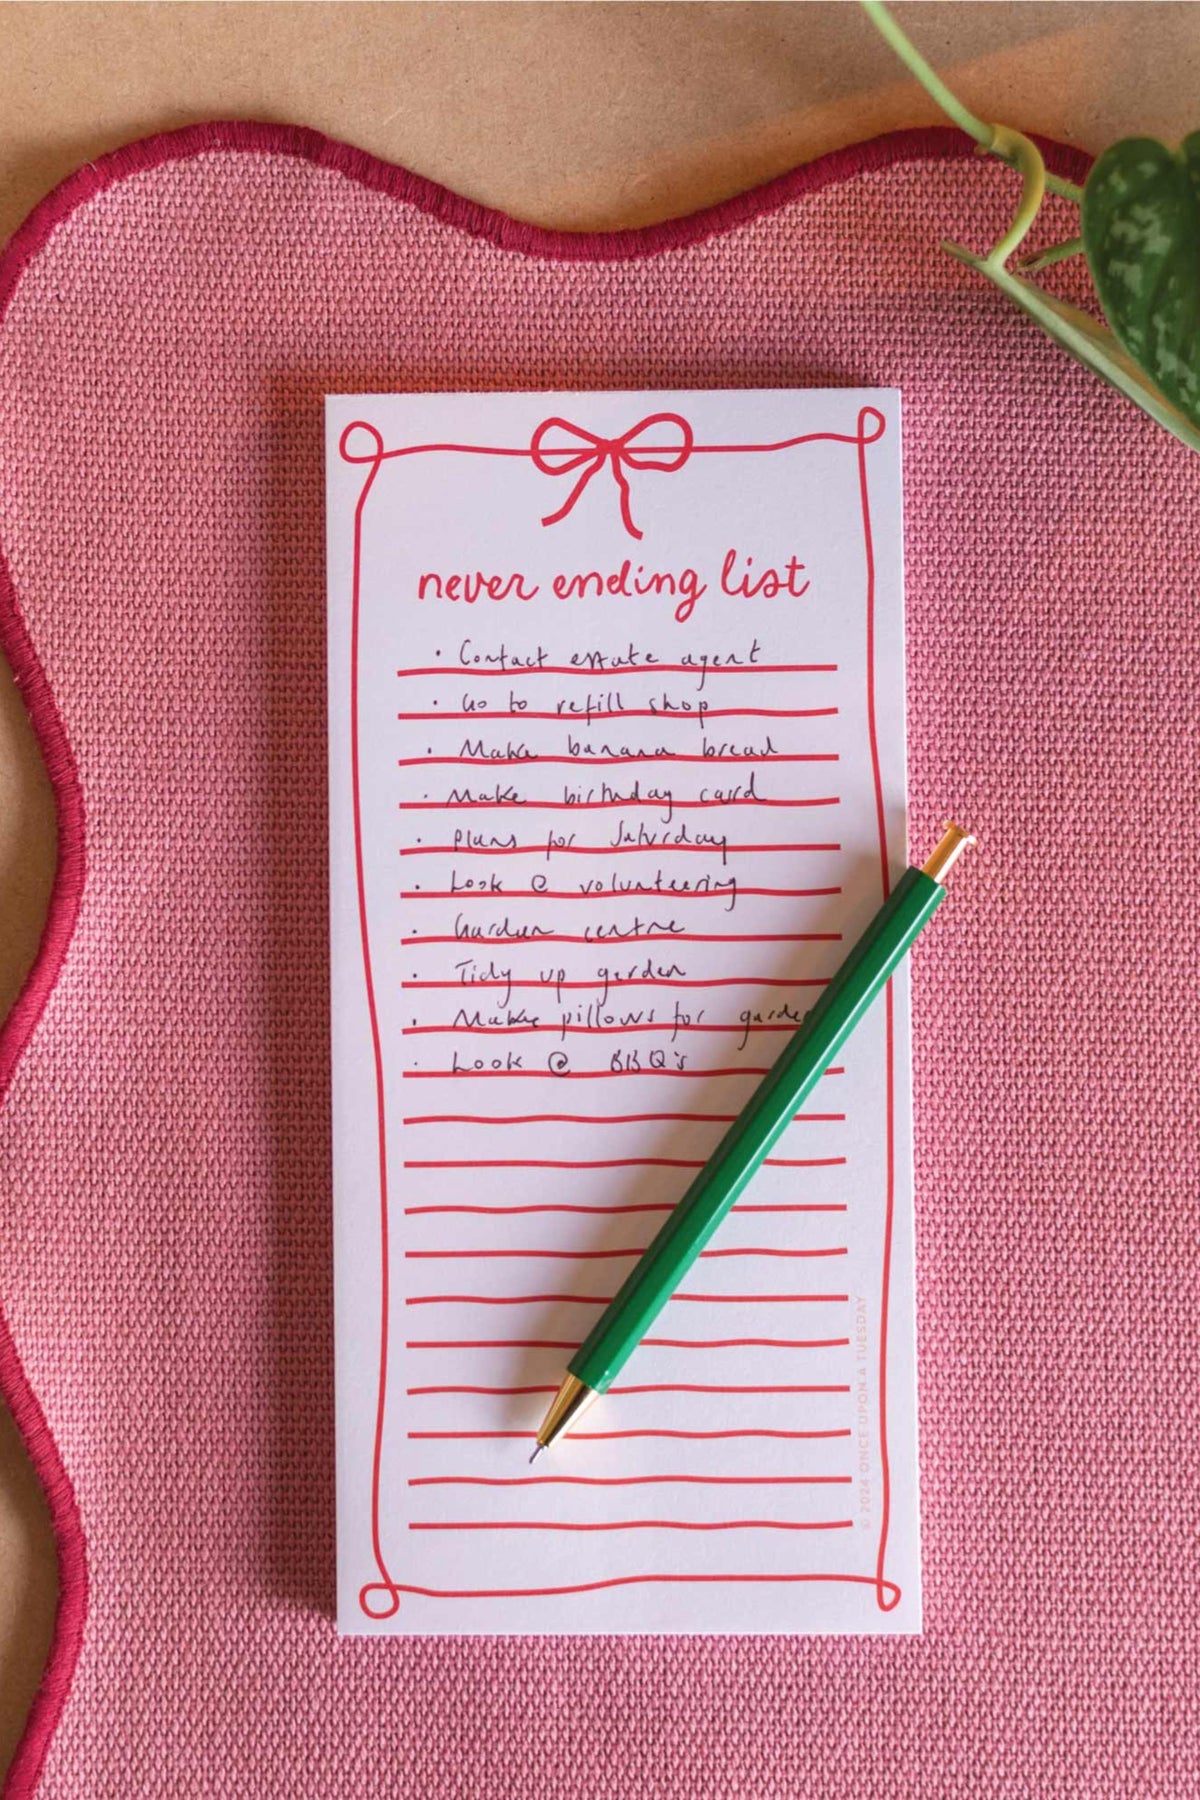 never ending list
· Contact estate agent
· Go to refill shop
· Make banana bread
· Make birthday card
· Plans for Saturday
· Look @ volunteering
· Garden centre
· Tidy up garden
· Make pillows for garden
· Look @ BBQ's
© 2024 ONCE UPON A TUESDAY